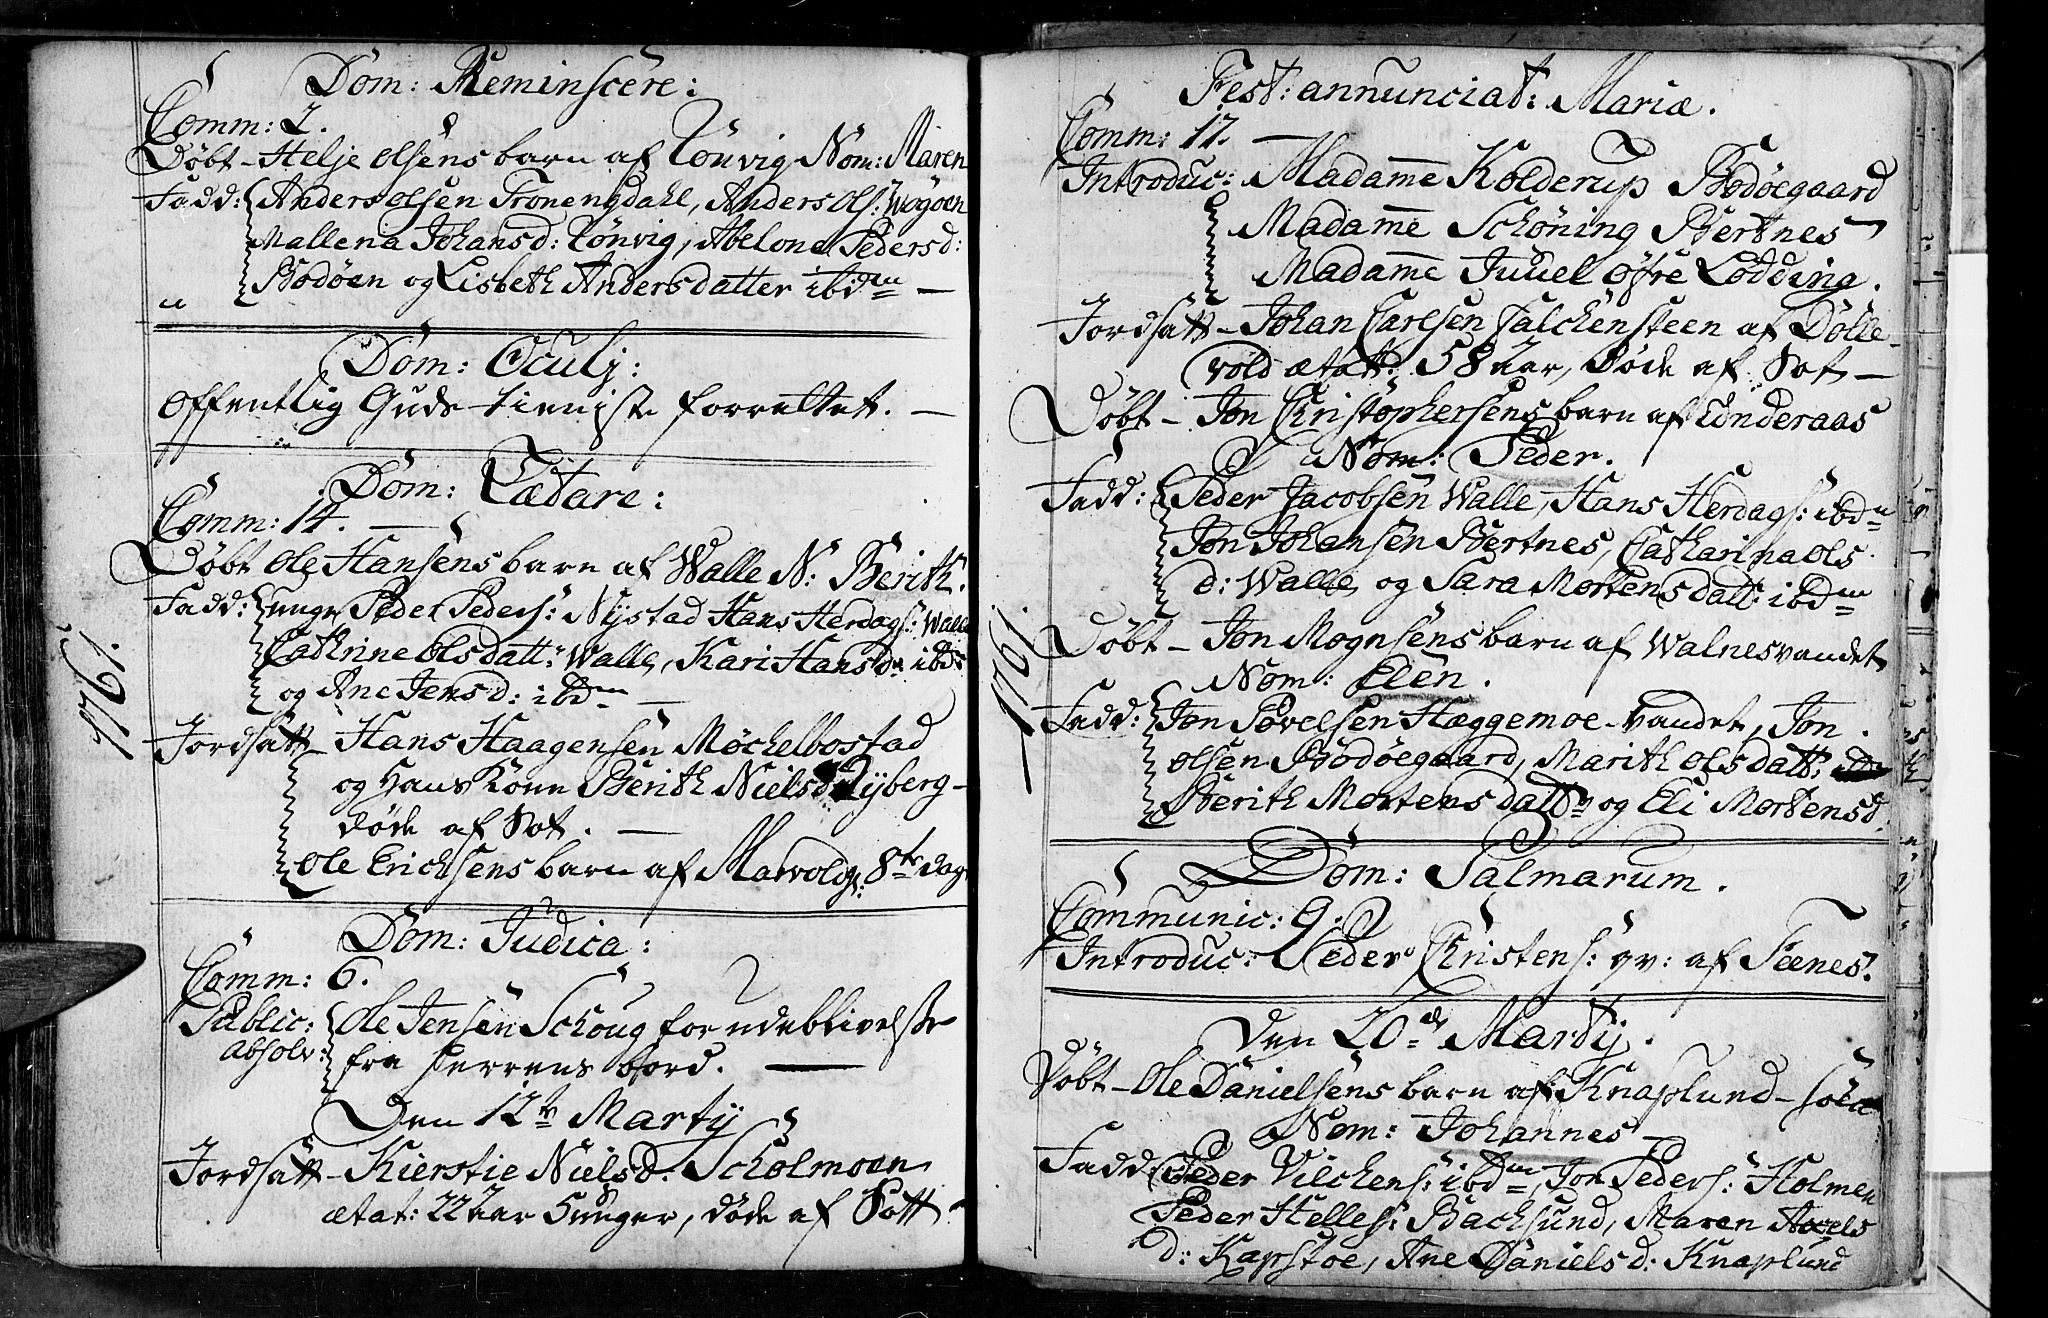 Dom: Reminscere:
Comm: 2.
Døbt – Helje Olsens barn af Lønvig Nom: Maren
Fadd: Anders Olsen Tronengdahl, Anders Ols: Wogøen
Mallena Johansd: Lønvig, Abelona Pedersd:
Bodøen og Lisbeth Andersdatter ibdm –
Dom: Oculj:
Offentlig Guds-tieniste forrettet. –
Dom: Lætare:
Comm: 14. –
Døbt Ole Hansens barn af Walle N: Berith.
Fadd: unge Peder Peders: Nystad Hans Herdags: Walle
Cathrine Olsdatt: Walle, Kari Hansd: ibd
og Ane Jensd: ibdm –
1761.
Jordsatt – Hans Haagensen Møchelbostad
og Hans Kone Berith Nielsd Rijberg –
døde af Sot. –
Ole Erichsens barn af Marvold, 8te dage
Dom: Judica:
Comm: 6.
Public: Ole Jensen Schoug for udeblivelse
Absolv: fra Herrens bord. –
Den 12te Martij
Jordsatt – Kierstie Nielsd. Scholmoen
ætat: 22 aar 5 uger, døde af Sott
Fest: annunciat: Mariæ.
Comm: 17. –
Introduc: Madame Kolderup Bodøegaard
Madame Schøning Bertnes
Madame Juuel Øfre Lødding.
Jordsatt – Johan Carlsen Falchensteen af Dølle-
vold ætatt: 58 aar, døde af Sot –
Døbt – Jon Christophersens barn af Lønderaas
Nom: Peder.
Fadd: Peder Jacobsen Walle, Hans Herdags: ibd
Jon Johansen Bertnes, Catharina Ols
d: Walle og Sara Mortensdatt: ibdm
1761.
Døbt – Jon Mognsens barn af Walnesvandet
Nom: Elen.
Fadd: Jon Povelsen Hæggemoe-vandet, Jon
Olsen Bodøegaard, Marith Olsdatt:
Berith Mortensdatt og Eli Mortensd:
Dom: Palmarum.
Communic: 9.
Introduc: Peder Christens: qv: af Teenes.
Den 20de Martij.
Døbt – Ole Danielsens barn af Knaplund –
Nom: Johannes
Fadd: Peder Vilchens: ibdm, Jon Peders: Holmen
Peder Helles: Bachsund, Maren Axels
d: Kapstoe, Ane Danielsd: Knaplund